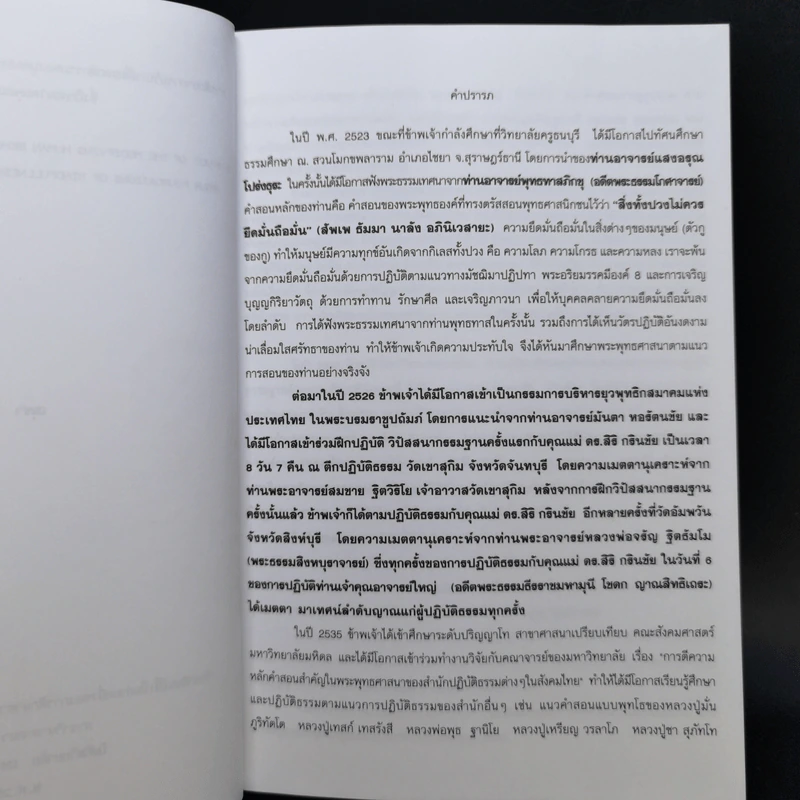 คำปรารภ
ในปี พ.ศ. 2523 ขณะที่ข้าพเจ้ากำลังศึกษาที่วิทยาลัยครูธนบุรี ได้มีโอกาสไปทัศนศึกษา
ธรรมศึกษา ณ. สวนโมกขพลาราม อำเภอไชยา จ.สุราษฎร์ธานี โดยการนำของท่านอาจารย์แสงอรุณ
โปร่งธุระ ในครั้งนั้นได้มีโอกาสฟังพระธรรมเทศนาจากท่านอาจารย์พุทธทาสภิกขุ (อดีตพระธรรมโกศาจารย์)
คำสอนหลักของท่านคือ คำสอนของพระพุทธองค์ที่ทรงตรัสสอนพุทธศาสนิกชนไว้ว่า "สิ่งทั้งปวงไม่ควร
ยึดมั่นถือมั่น" (สัพเพ ธัมมา นาลัง อภินิเวสายะ) ความยึดมั่นถือมั่นในสิ่งต่างๆของมนุษย์ (ตัวกู
ของกู) ทำให้มนุษย์มีความทุกข์อันเกิดจากกิเลสทั้งปวง คือ ความโลภ ความโกรธ และความหลง เราจะพ้น
จากความยึดมั่นถือมั่นด้วยการปฏิบัติตามแนวทางมัชฌิมาปฏิปทา พระอริยมรรคมีองค์ 8 และการเจริญ
บุญญกิริยาวัตถุ ด้วยการทำทาน รักษาศีล และเจริญภาวนา เพื่อให้บุคคลคลายความยึดมั่นถือมั่นลง
โดยลำดับ การได้ฟังพระธรรมเทศนาจากท่านพุทธทาสในครั้งนั้น รวมถึงการได้เห็นวัตรปฏิบัติอันงดงาม
น่าเลื่อมใสศรัทธาของท่าน ทำให้ข้าพเจ้าเกิดความประทับใจ จึงได้หันมาศึกษาพระพุทธศาสนาตามแนว
การสอนของท่านอย่างจริงจัง
ต่อมาในปี 2526 ข้าพเจ้าได้มีโอกาสเข้าเป็นกรรมการบริหารยุวพุทธิกสมาคมแห่ง
ประเทศไทย ในพระบรมราชูปถัมภ์ โดยการแนะนำจากท่านอาจารย์มันตา หอรัตนชัย และ
ได้มีโอกาสเข้าร่วมฝึกปฏิบัติ วิปัสสนากรรมฐานครั้งแรกกับคุณแม่ ดร.สิริ กรินชัย เป็นเวลา
8 วัน 7 คืน ณ ตึกปฏิบัติธรรม วัดเขาสุกิม จังหวัดจันทบุรี โดยความเมตตานุเคราะห์จาก
ท่านพระอาจารย์สมชาย ฐิตวิริโย เจ้าอาวาสวัดเขาสุกิม หลังจากการฝึกวิปัสสนากรรมฐาน
ครั้งนั้นแล้ว ข้าพเจ้าก็ได้ตามปฏิบัติกับคุณแม่ ดร.สิริ กรินชัย อีกหลายครั้งที่วัดอัมพวัน
จังหวัดสิงห์บุรี โดยความเมตตานุเคราะห์จากท่านพระอาจารย์หลวงพ่อจรัญ ฐิตธัมโม
(พระธรรมสิงหบุราจารย์) ซึ่งทุกครั้งของการปฏิบัติธรรมกับคุณแม่ ดร.สิริ กรินชัย ในวันที่ 6
ของการปฏิบัติท่านเจ้าคุณอาจารย์ใหญ่ (อดีตพระธรรมธีรราชมหามุนี โชดก ญาณสิทธิเถระ)
ได้เมตตา มาเทศน์ลำดับญาณแก่ผู้ปฏิบัติธรรมทุกครั้ง
ในปี 2535 ข้าพเจ้าได้เข้าศึกษาระดับปริญญาโท สาขาศาสนาเปรียบเทียบ คณะสังคมศาสตร์
มหาวิทยาลัยมหิดล และได้มีโอกาสเข้าร่วมทำงานวิจัยกับคณาจารย์ของมหาวิทยาลัย เรื่อง "การตีความ
หลักคำสอนสำคัญในพระพุทธศาสนาของสำนักปฏิบัติธรรมต่างๆในสังคมไทย" ทำให้ได้มีโอกาสเรียนรู้ศึกษา
และปฏิบัติธรรมตามแนวการปฏิบัติธรรมของสำนักอื่นๆ เช่น แนวคำสอนแบบพุทโธของหลวงปู่มั่น
ภูริทัตโต หลวงปู่เทสก์ เทสรังสี หลวงพ่อพุธ ฐานิโย หลวงปู่เหรียญ วรลาโภ หลวงปู่ชา สุภัทโท